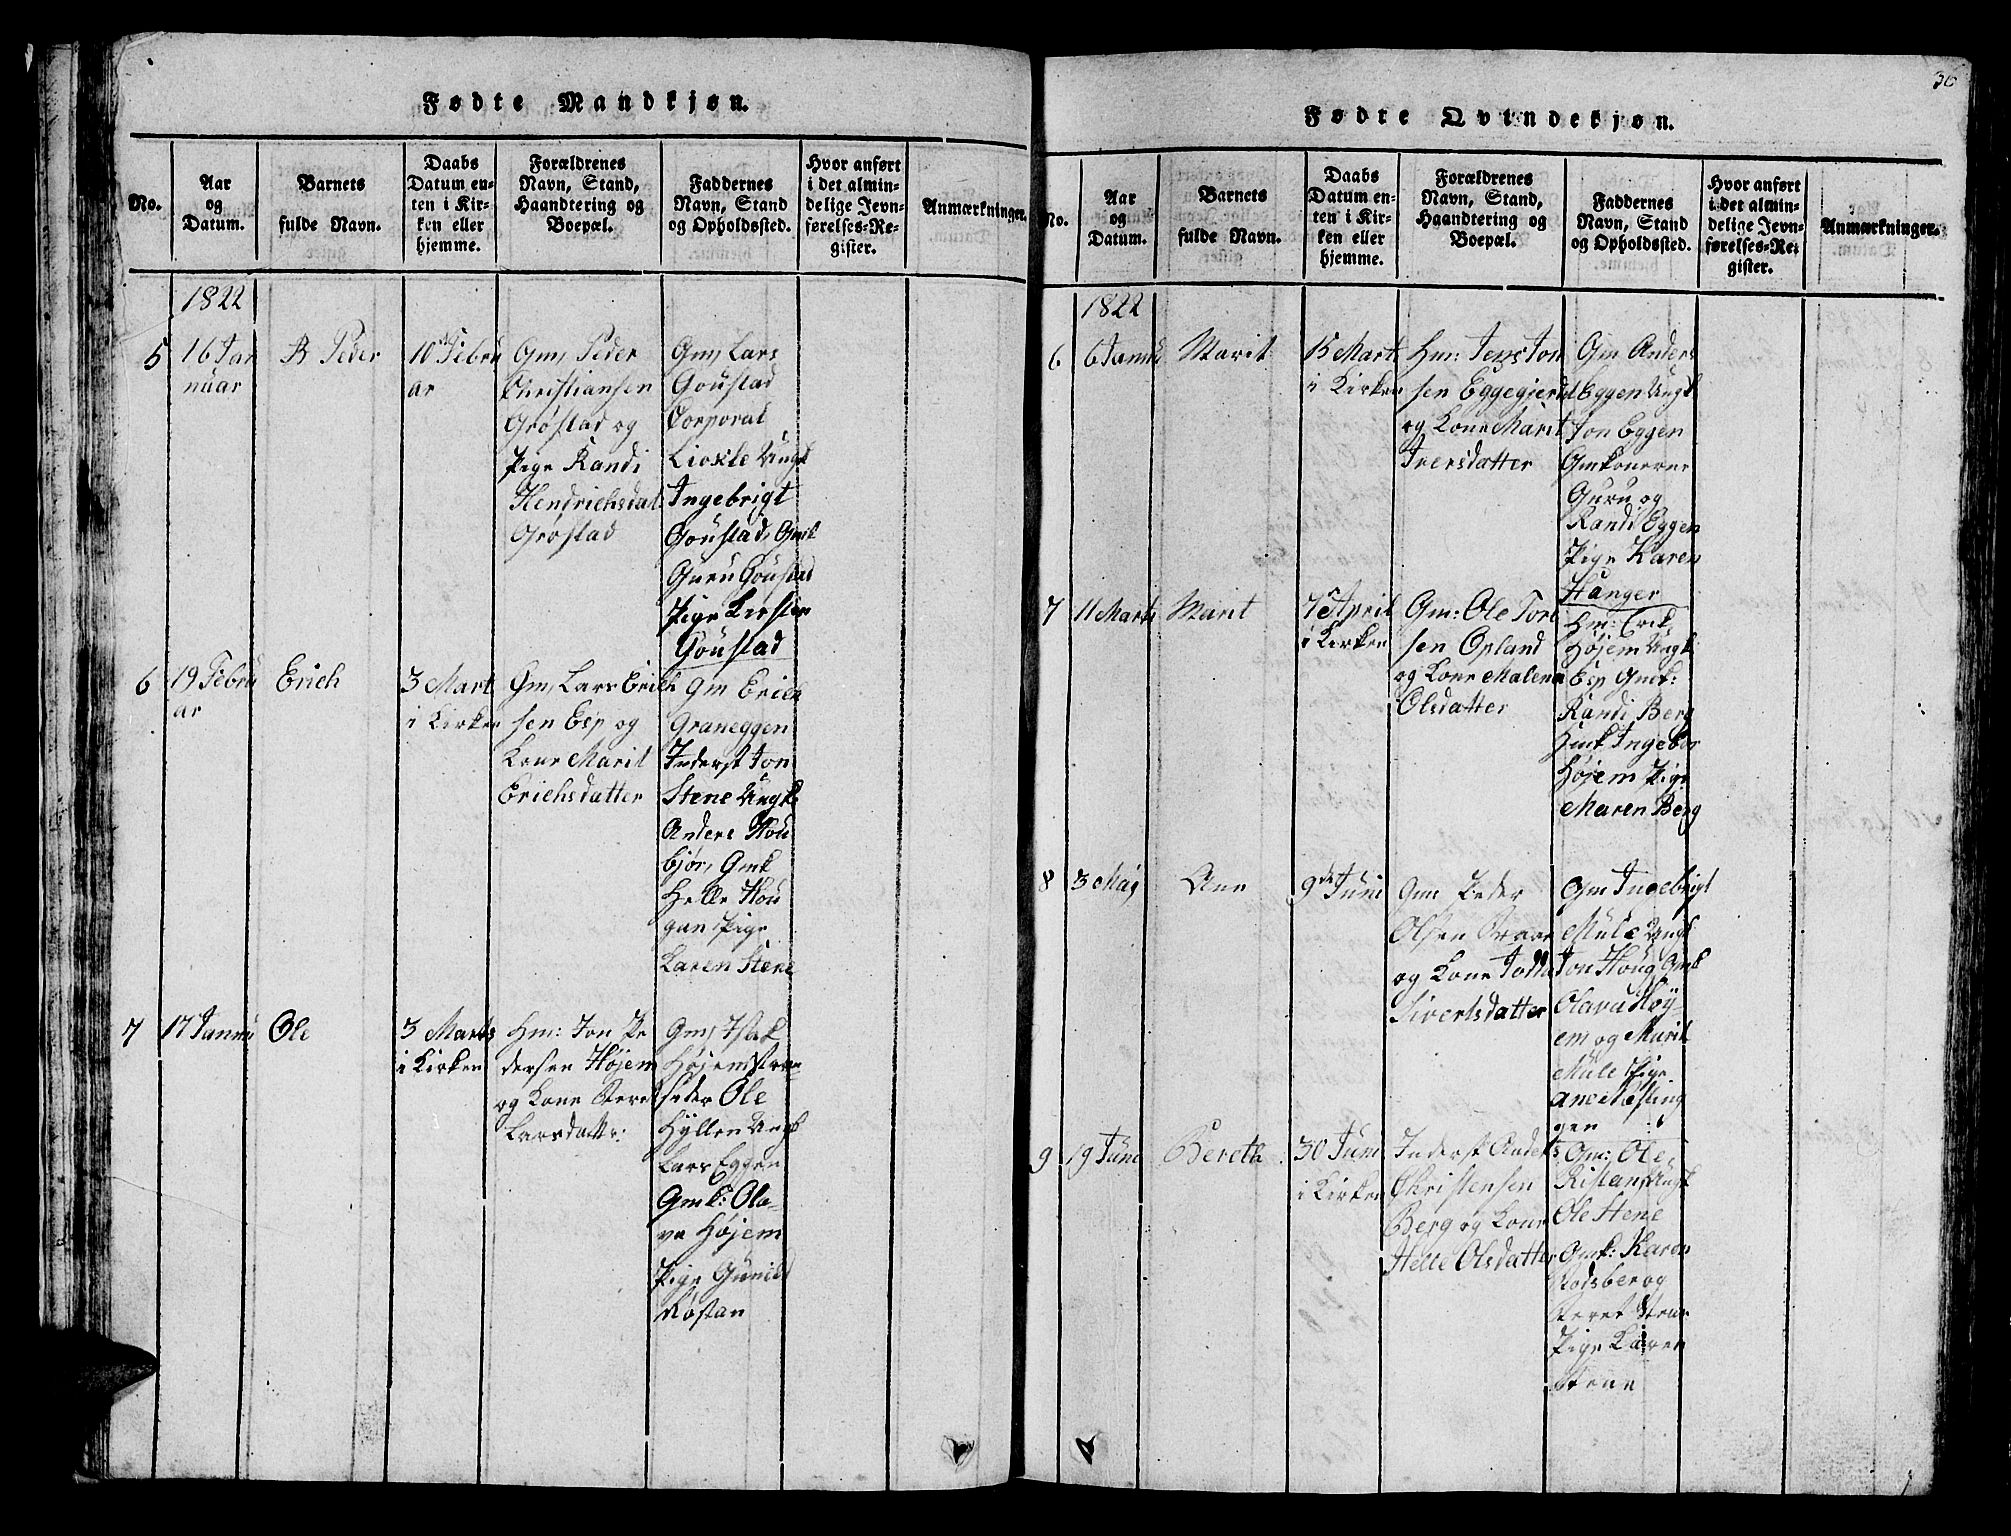 Fødte Mandkjøn.
No.
Aar
og
Datum.
Barnets
fulde Navn.
Daabs
Datum en-
ten i Kir-
ken eller
hjemme.
Forældrenes
Navn, Stand,
Haandtering og
Boepæl.
Faddernes
Navn, Stand
og Opholdssted.
Hvor anført
i det almin-
delige Jevn-
førelses-Re-
gister.
Anmærkninger.
1822
5
16 Jan
nuar
B Peder
10 Febru
ar
Gm, Peder
Christiansen
Grøstad og
Pige Randi
Hendrichsdat
Grøstad
Gm, Lars
Goustad
Corporal
Ungk
Ingebrigt
Goustad, Gmk
Guru Goustad
Pige Kirsten
Goustad
6
19 Febru
ar
Erich
3 Mart
i Kirken
Gm, Lars Erich
sen Esp og
Kone Marit
Erichsdatter
Gm Erich
Graneggen
Inderst Jon
Stene Ungk
Anders Hou
bjør, Gmk
Helle Hou
gan Pige
Karen Stene
7
17 Janu
Ole
3 Marts
i Kirken
Hm: Jon Pe
dersen Højem
og Kone Beret
Larsdattr:
Gm, Isak
Højem
Ole
Hyllen Ungk
Lars Eggen
Gmk: Ola-
va Højem
Pige Gunild
Røstan
36
Fødte Qvindekjøn.
No.
Aar
og
Datum.
Barnets
fulde Navn.
Daabs
Datum en-
ten i Kir-
ken eller
hjemme.
Forældrenes
Navn, Stand,
Haandtering og
Boepæl.
Faddernes
Navn, Stand
og Opholdssted.
Hvor anført
i det almin-
delige Jevn-
førelses-Re-
gister.
Anmærkninger.
1822
6
6 Janu
Marit
15 Mart
i Kirken
Hm: Jens Jon
sen Eggegjerdet
og Kone Marit
Iversdatter
Gm Anders
Eggen Ungk
Jon Eggen
Gmkonerne
Guru og
Randi Eggen
Pige Karen
Hanger
7
11 Marts
Marit
7 April
i Kirken
Gm: Ole Tort
sen Opland
og Kone Malena
Olsdatter
Hm: Erik
Højem Ungk
Esp Gmk:
Randi Berg
Hmk Ingebor
Højem Pige
Maren Berg
8
3 Maj
Ane
9de Juni
Gm Peder
Olsen
og Kone
Sivertsdatter
Gm Ingebrigt
Mule Ungk
Jon Houg Gmk
Olava Høy-
em og Marit
Mule Pige
Ane
gen
9
19 Juni
Bereth
30 Juni
i Kirken
Inderst Anders
Christensen
Berg og Kone
Helle Olsdatter
Gm: Ole
Ristan, Ungk
Ole Stene
Gmk: Karen
Rodsber og
Beret Stene
Pige Karen
Stene